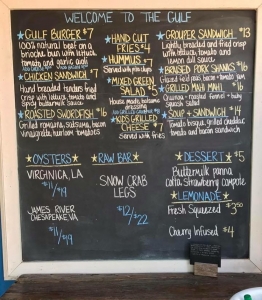 WELCOME TO THE GULF
★GULF BURGER ★$7
100% natural beef on a
brioche bun with lettuce,
tomato and garlic aioli
★CHICKEN SANDWICH ★$7
Hand breaded tenders fried
crisp with lettuce, tomato and
Spicy buttermilk Sauce
★ROASTED SWORDFISH ★$16
Grilled romaine, salsuma, bacon
vinaigrette, heirloom tomatoes
★HAND CUT
FRIES★$4
★HUMMUS ★$7
Served with pita chips
★MIXED GREEN
SALAD ★$5
House made balsamic
dressing
★KIDS GRILLED
CHEESE ★$7
Served with fries
★GROUPER SANDWICH ★$13
Lightly breaded and fried crisp
with lettuce, tomato and
lemon dill sauce
★BRAISED PORK SHANKS ★$16
field peas, bacon + tomato jam
★GRILLED MAHI MAHI ★$16
roasted fennel + baby
squash Salad
★SOUP + SANDWICH ★$14
Tomato bisque, Grilled cheddar
tomato, bacon sandwich
★OYSTERS★
VIRGINICA, LA
$11/$19
JAMES RIVER
CHESAPEAKE, VA
$11/$19
★RAW BAR★
SNOW CRAB
LEGS
$12/$22
★DESSERT★$5
Buttermilk panna
cotta Strawberry Compote
★LEMONADE★
Fresh Squeezed $3.50
Cherry Infused $4